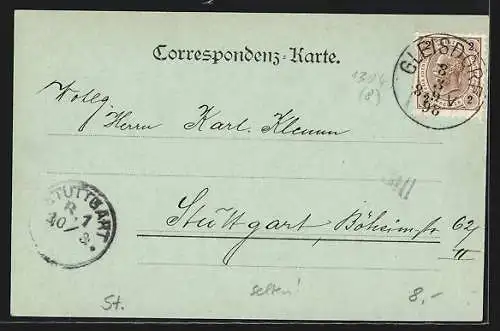 Correspondenz-Karte.
2 2
GLEISDORF
8
3
98
2
1304
(8)
Wollg.
Herrn Karl Klemm
STUTTGART
Stuttgart, Böheimstr 62/
II
10/3.
St.
selten!
8,-